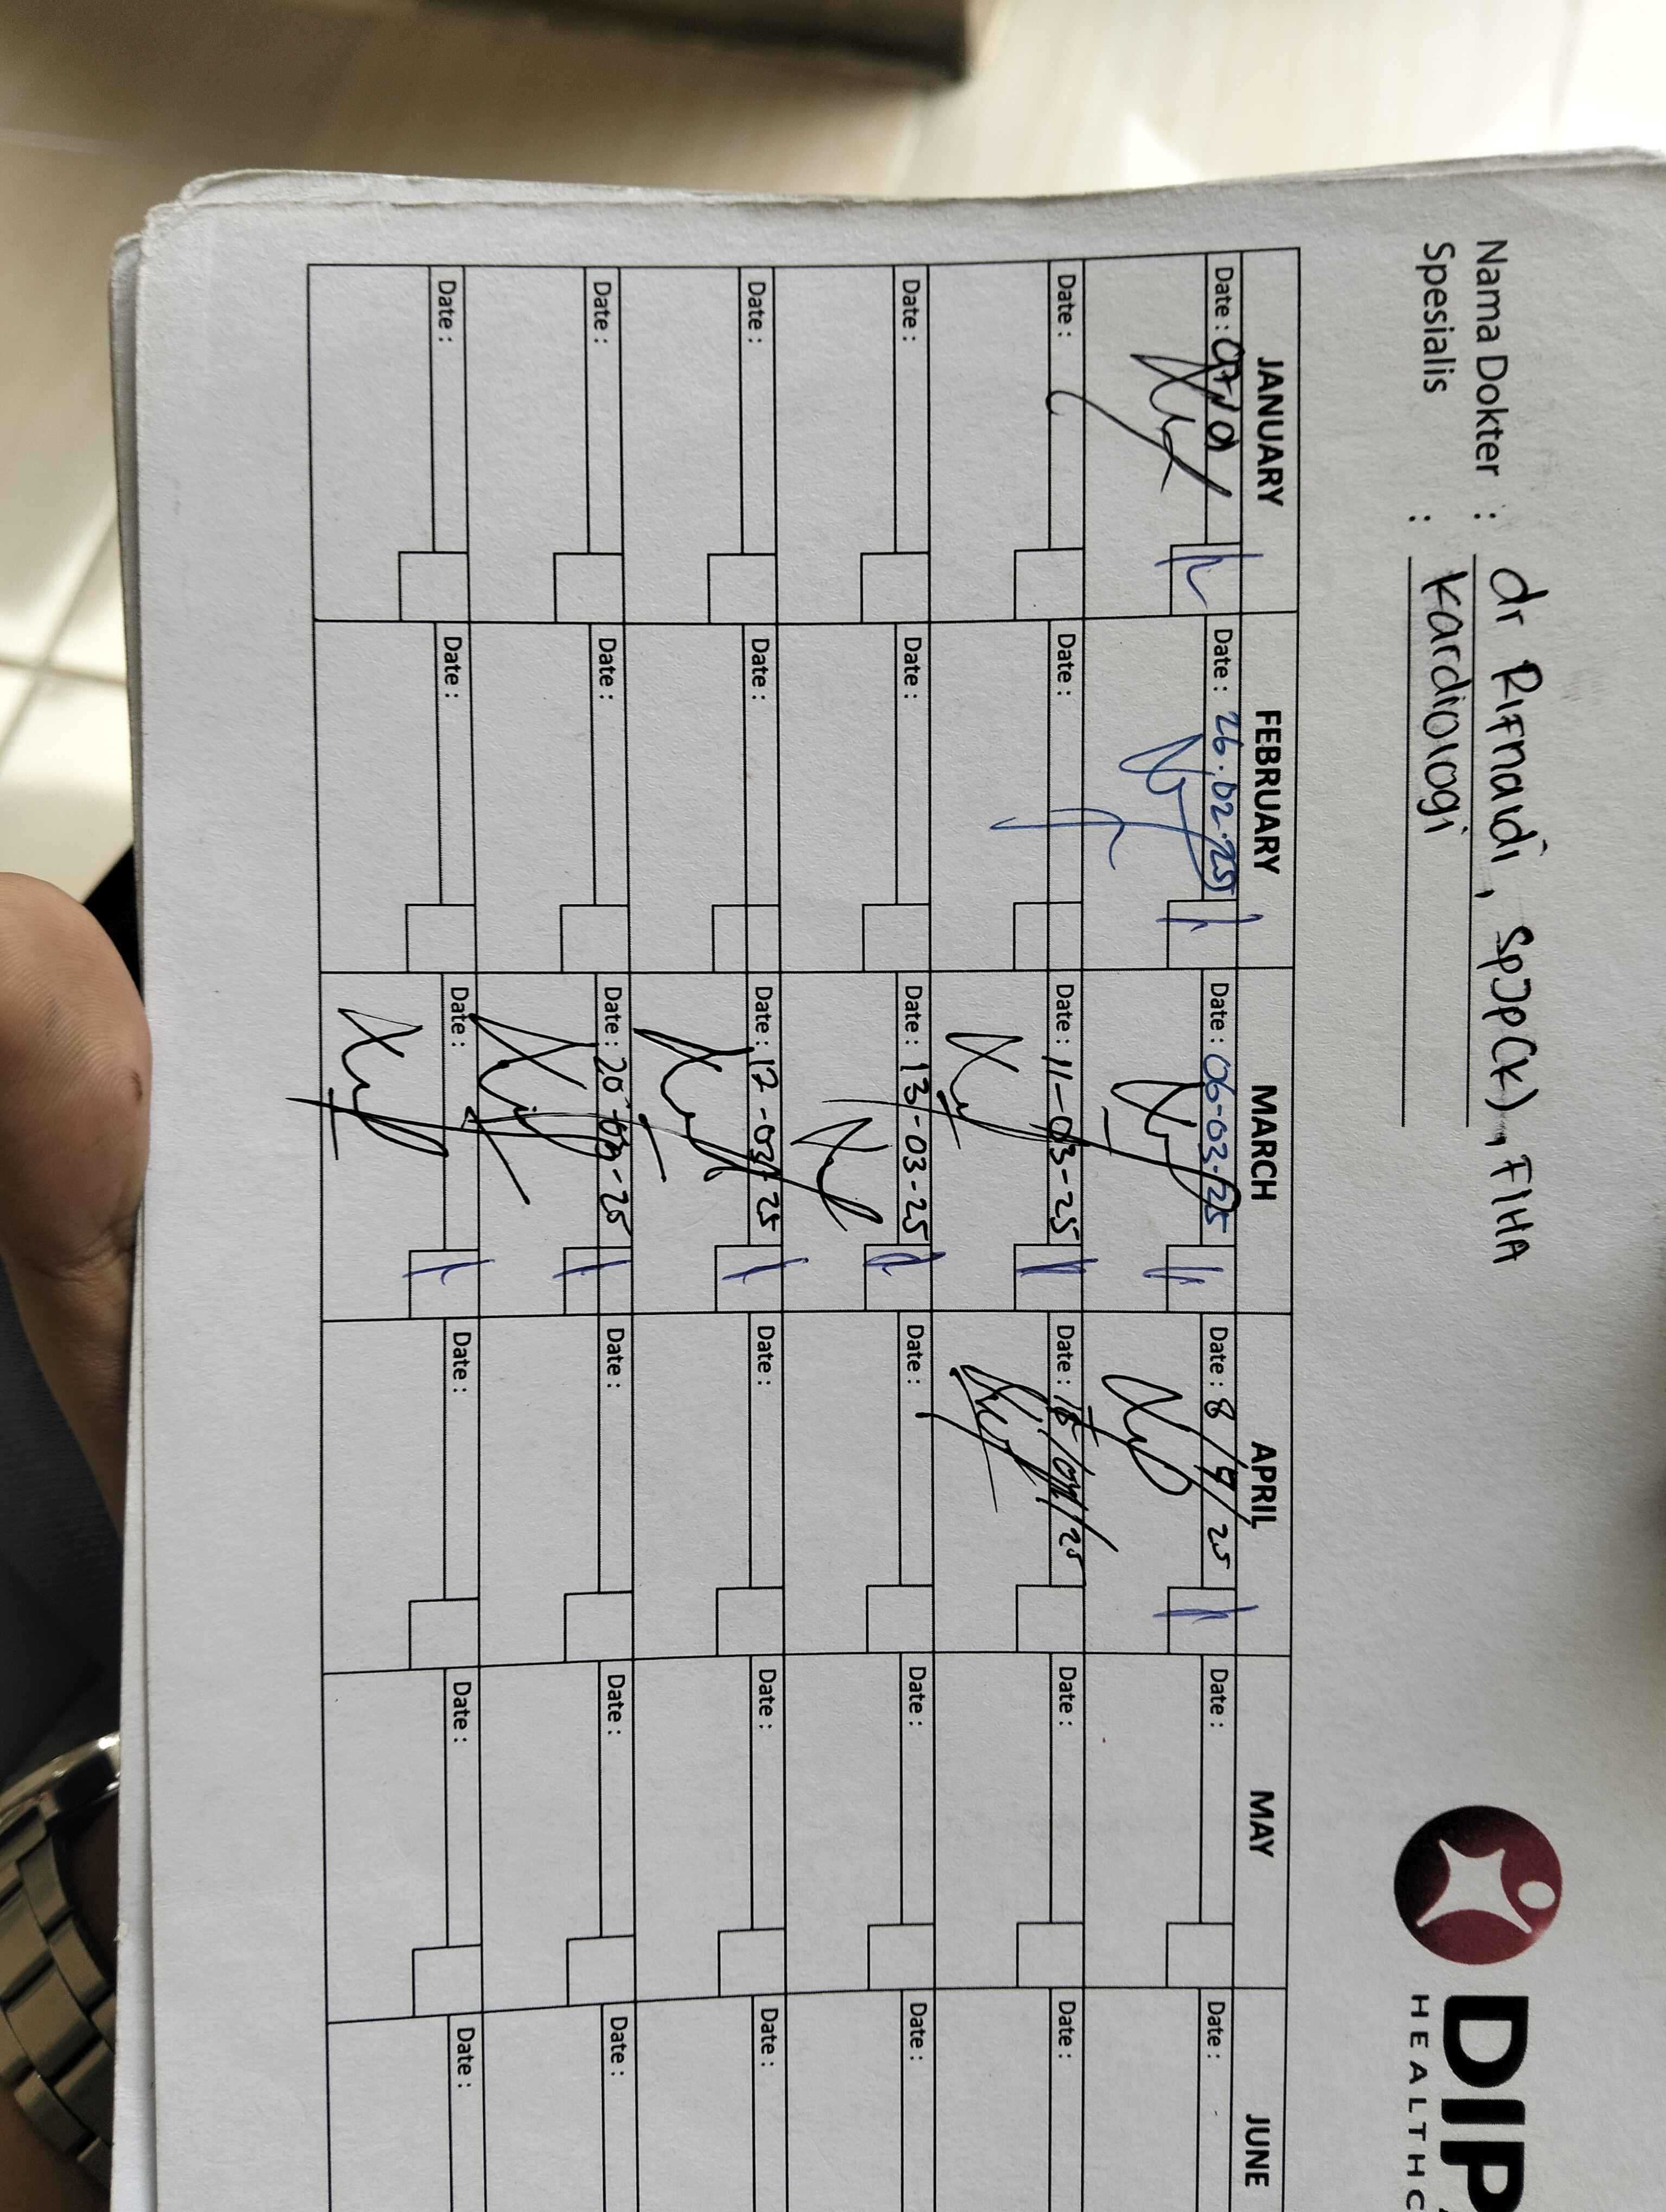 Nama Dokter : dr Rifnaldi, SpJP(K), FIHA
Spesialis : Kardiologi
DIP
HEALTHC
JANUARY FEBRUARY MARCH APRIL MAY JUNE
Date : Date : 26.02.25 Date : 06-03-25 Date : 8/4/25 Date : Date :
Date : Date : Date : 11-03-25 Date : 15/04/25 Date : Date :
Date : Date : Date : 13-03-25 Date : Date : Date :
Date : Date : Date : 17-03-25 Date : Date : Date :
Date : Date : Date : 20-03-25 Date : Date : Date :
Date : Date : Date : Date : Date : Date :